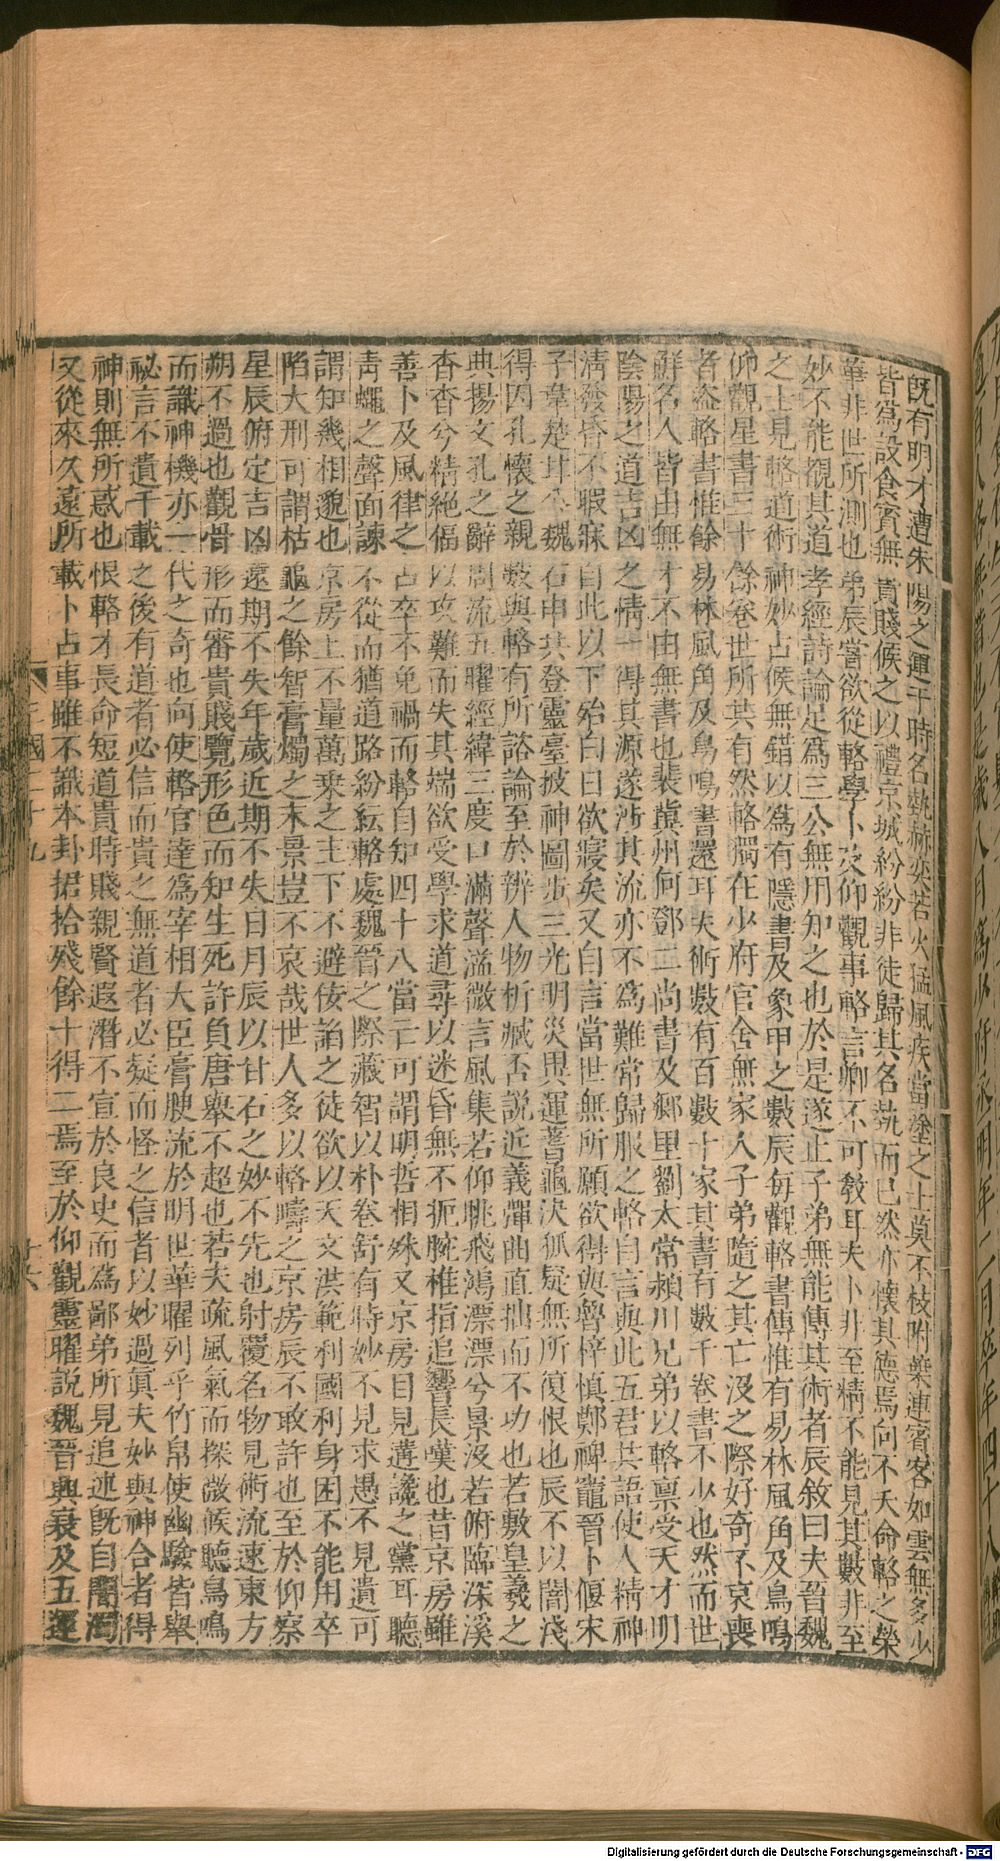 旣有明才遭朱陽之運于時名勢赫奕若火猛風疾當塗之士莫不枝附葉連賓客如雲無多少
皆爲設食賓無貴賤候之以禮京城紛紛非徒歸其名勢而已然亦懷其德焉向不夭命輅之榮
華非世所測也弟辰嘗欲從輅學卜及仰觀事輅言卿不可敎耳夫卜非至精不能見其數非至
妙不能覩其道孝經詩論足爲三公無用知之也於是遂止子弟無能傳其術者辰敘曰夫晉魏
之士見輅道術神妙占候無錯以爲有隱書及象甲之數辰每觀輅書傳惟有易林風角及鳥鳴
仰觀星書三十餘卷世所共有然輅獨在少府官舍無家人子弟隨之其亡沒之際好奇不哀喪
者盜輅書惟餘易林風角及鳥鳴書還耳夫術數有百數十家其書有數千卷書不少也然而世
鮮名人皆由無才不由無書也裴冀州何鄧二尚書及鄉里劉太常潁川兄弟以輅稟受天才明
陰陽之道吉凶之情一得其源遂涉其流亦不爲難常歸服之輅自言與此五君共語使人精神
淸發昏不暇寐自此以下殆白日欲寢矣又自言當世無所願欲得與魯梓愼鄭禆竈晉卜偃宋
子韋楚甘公魏石申共登靈臺披神圖步三光明災異運蓍龜決狐疑無所復恨也辰不以闇淺
得因孔懷之親數與輅有所諮論至於辨人物析臧否說近義彈曲直拙而不功也若敷皇羲之
典揚文孔之辭周流五曜經緯三度口滿聲溢微言風集若仰眺飛鴻漂漂兮景沒若俯臨深溪
杳杳兮精絕偪以攻難而失其端欲受學求道尋以迷昏無不扼腕椎指追響長嘆也昔京房雖
善卜及風律之占卒不免禍而輅自知四十八當亡可謂明哲相殊又京房目見遘讒之黨耳聽
靑蠅之聲面諫不從而猶道路紛紜輅處魏晉之際藏智以朴卷舒有時妙不見求愚不見遺可
謂知幾相邈也京房上不量萬乗之主下不避佞諂之徒欲以天文洪範利國利身困不能用卒
陷大刑可謂枯龜之餘智膏燭之末景豈不哀哉世人多以輅疇之京房辰不敢許也至於仰察
星辰俯定吉凶遠期不失年歲近期不失日月辰以甘石之妙不先也射覆名物見術流速東方
朔不過也觀骨形而審貴賤覽形色而知生死許負唐舉不超也若夫疏風氣而探微候聽鳥鳴
而識神機亦一代之奇也向使輅官達爲宰相大臣膏腴流於明世華曜列乎竹帛使幽驗皆舉
祕言不遺千載之後有道者必信而貴之無道者必疑而怪之信者以妙過眞夫妙與神合者得
神則無所惑也恨輅才長命短道貴時賤親賢遐潛不宣於良史而爲鄙弟所見追述旣自闇濁
又從來久遠所載卜占事雖不識本卦捃拾殘餘十得二焉至於仰觀靈曜說魏晉興衰及五運
三國二十九
十六
Digitalisierung gefördert durch die Deutsche Forschungsgemeinschaft - DFG